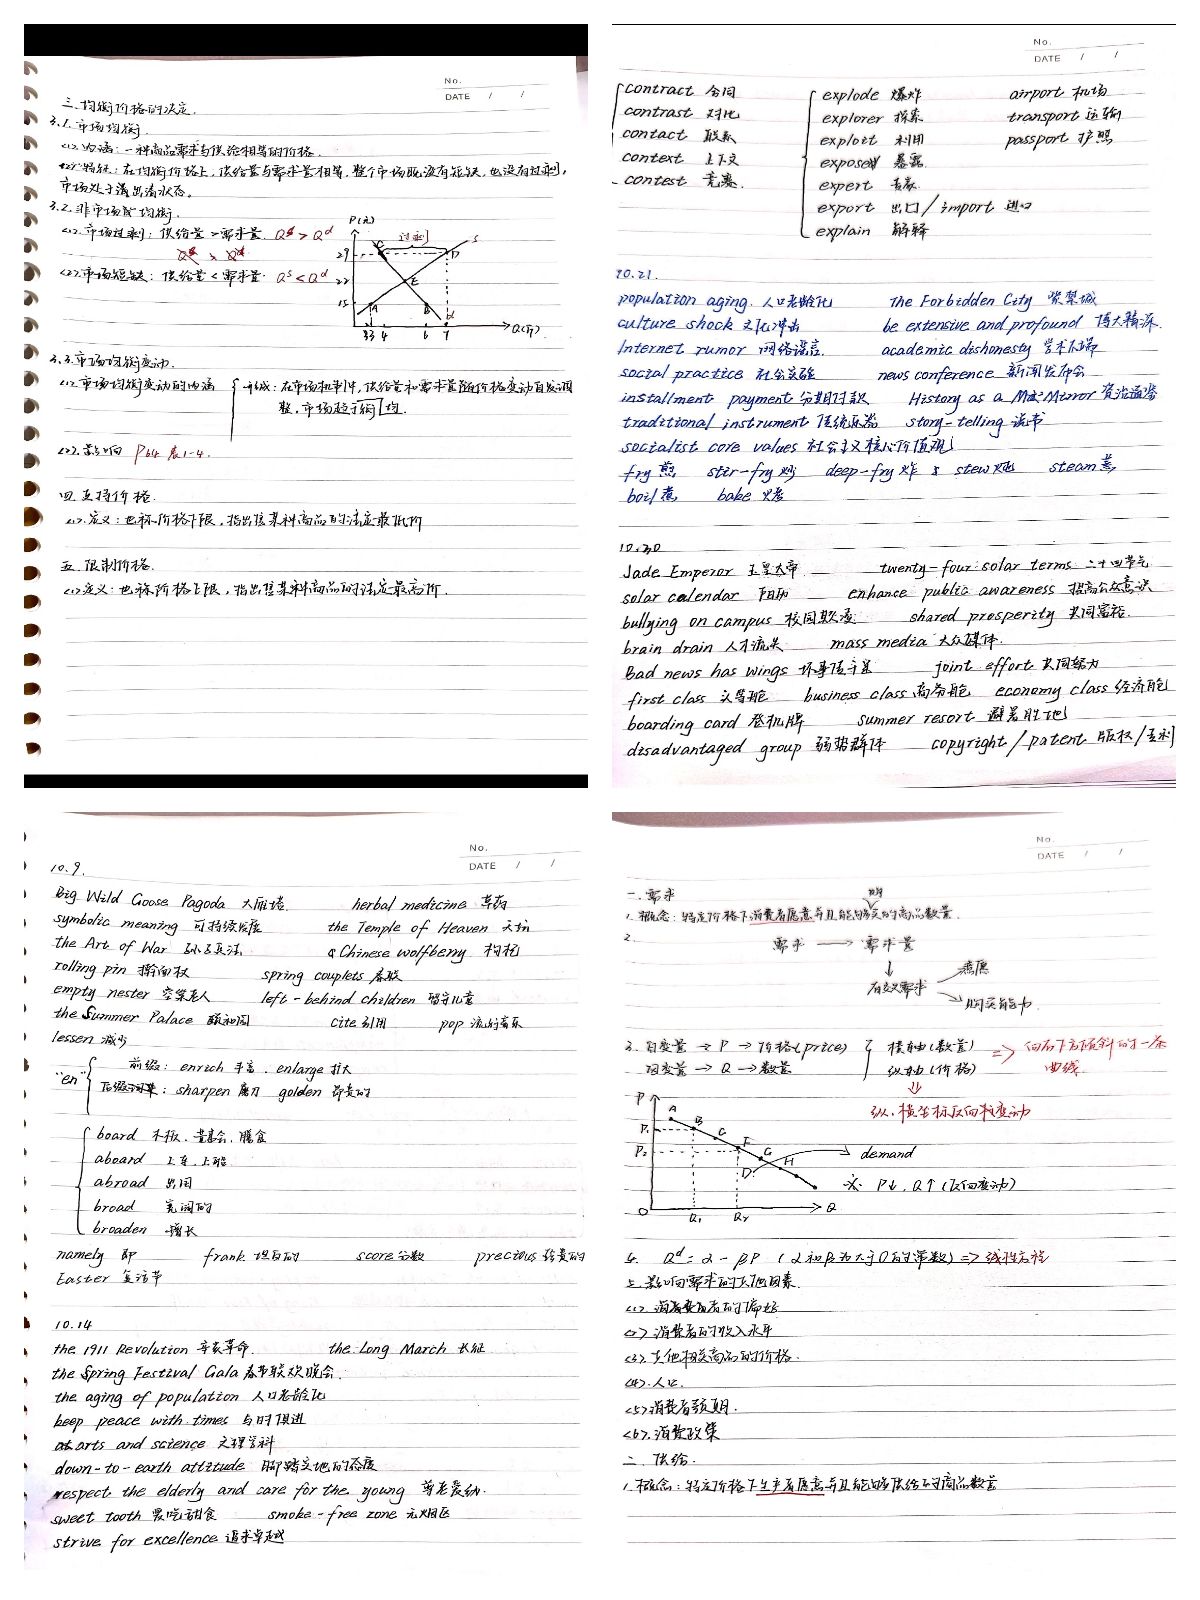 No.
DATE / /
三.均衡价格的决定.
3.1.市场均衡.
<1>.内涵:一种商品需求与供给相等的价格.
<2>.特征:在均衡价格上,供给量与需求量相等,整个市场既没有短缺,也没有过剩,
市场处于清出清状态.
3.2.非市场均衡.
<1>.市场过剩:供给量>需求量. Qs > Qd
<2>.市场短缺:供给量<需求量. Qs < Qd
P(元)
过剩
S
29
D
22
E
15
A
B
d
33 4 6 7
3.3.市场均衡变动.
<1>.市场均衡变动的内涵
形成:在市场机制中,供给量和需求量随价格变动自发调
整,市场趋于均衡.
<2>.影响 P64 表1-4.
四.支持价格.
<1>.定义:也称价格下限,指出售某种商品的法定最低价
五.限制价格.
<1>定义:也称价格上限,指出售某种商品的法定最高价.
No.
DATE / /
contract 合同
contrast 对比
contact 联系
context 上下文
contest 竞赛.
explode 爆炸
explorer 探索
exploit 利用
expose 暴露
expert 专家
export 出口 / import 进口
explain 解释
airport 机场
transport 运输
passport 护照
10.21.
population aging. 人口老龄化 the Forbidden City 紫禁城
culture shock 文化冲击 be extensive and profound 博大精深.
Internet rumor 网络谣言. academic dishonesty 学术不端
social practice 社会实践 news conference 新闻发布会
installment payment 分期付款 History as a Mirror 资治通鉴
traditional instrument 传统乐器 story-telling 说书
socialist core values 社会主义核心价值观
fry 煎 stir-fry 炒 deep-fry 炸 stew 炖 steam 蒸
boil 煮 bake 烤
10.30
Jade Emperor 玉皇大帝 twenty-four solar terms 二十四节气
solar calendar 阳历 enhance public awareness 提高公众意识
bullying on campus 校园欺凌 shared prosperity 共同富裕.
brain drain 人才流失 mass media 大众媒体.
Bad news has wings 坏事传千里 joint effort 共同努力
first class 头等舱 business class 商务舱 economy class 经济舱
boarding card 登机牌 summer resort 避暑胜地
disadvantaged group 弱势群体 copyright / patent 版权/专利
No.
DATE / /
10.9.
Big Wild Goose Pagoda 大雁塔. herbal medicine 草药
symbolic meaning 可持续发展 the Temple of Heaven 天坛
the Art of War 孙子兵法 Chinese wolfberry 枸杞
rolling pin 擀面杖 spring couplets 春联
empty nester 空巢老人 left-behind children 留守儿童
the Summer Palace 颐和园 cite 引用 pop 流行音乐
lessen 减少
"en"
前缀: enrich 丰富. enlarge 扩大
后缀: sharpen 磨刀 golden 珍贵的
board 木板、董事会、膳食
aboard 上车、上船
abroad 出国
broad 宽阔的
broaden 增长
namely 即 frank 坦白的 score 分数 precious 珍贵的
Easter 复活节
10.14
the 1911 Revolution 辛亥革命. the Long March 长征
the Spring Festival Gala 春节联欢晚会.
the aging of population 人口老龄化
keep peace with times 与时俱进
arts and science 文理学科
down-to-earth attitude 脚踏实地的态度
respect the elderly and care for the young 尊老爱幼.
sweet tooth 爱吃甜食 smoke-free zone 无烟区
strive for excellence 追求卓越
No.
DATE / /
一.需求
1.概念:特定价格下消费者愿意并且能够购买的商品数量.
2. 需求 → 需求量
↓
有效需求
意愿
购买能力
3.自变量 → P → 价格(price)
因变量 → Q → 数量
横轴(数量)
纵轴(价格)
=> 向右下方倾斜的一条
曲线.
纵、横坐标反向变动
P
A
P1
B
C
P2
F
G
H
D
demand
※ P↓、Q↑(反向变动)
O Q1 Q2 Q
4. Qd = α - βP (α和β为大于0的常数) => 线性方程
5.影响需求的其他因素.
<1>.消费者的偏好
<2>消费者的收入水平
<3>.其他相关商品的价格.
<4>.人口.
<5>消费者预期.
<6>.消费政策
二.供给.
1.概念:特定价格下生产者愿意并且能够供给的商品数量